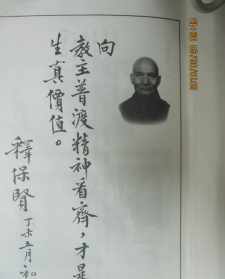 向
教主普渡精神看齊，才是
生真價值。
釋保賢 丁未五月初